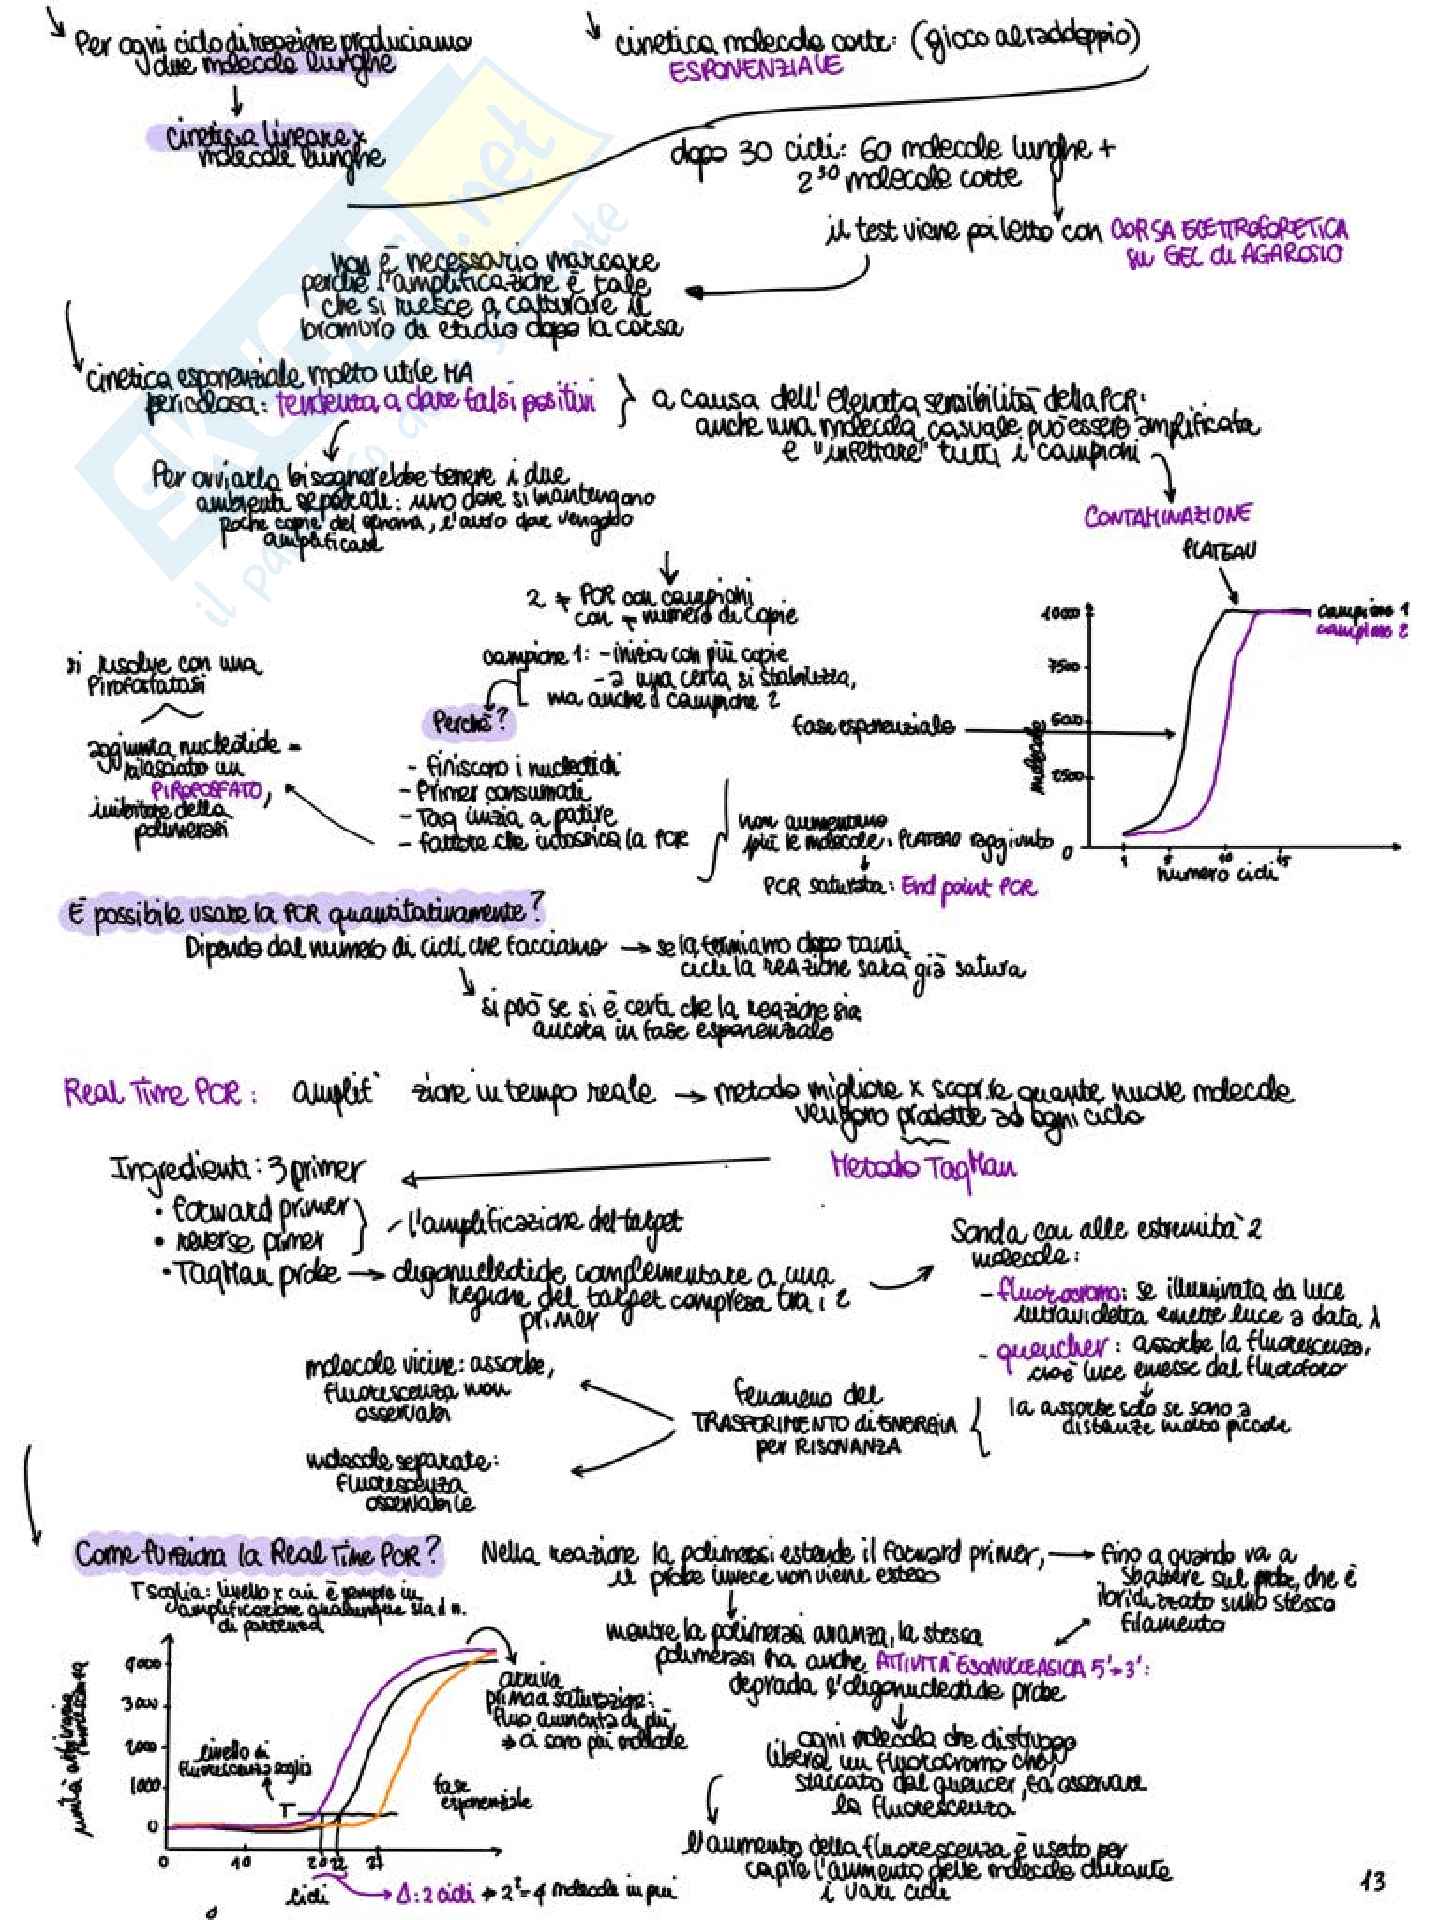 Per ogni ciclo di reazione produciamo
due molecole lunghe
cinetica lineare x
molecole lunghe
cinetica molecole corte: (gioco al raddoppio)
ESPONENZIALE
dopo 30 cicli: 60 molecole lunghe +
2³⁰ molecole corte
il test viene poi letto con CORSA ELETTROFORETICA
su GEL di AGAROSIO
non è necessario marcare
perché l'amplificazione è tale
che si riesce a catturare il
bromuro di etidio dopo la corsa
cinetica esponenziale molto utile MA
pericolosa: tendenza a dare falsi positivi
a causa dell'elevata sensibilità della PCR:
anche una molecola casuale può essere amplificata
e "infettare" tutti i campioni
CONTAMINAZIONE
Per ovviarla bisognerebbe tenere i due
ambienti separati: uno dove si mantengono
poche copie del genoma, l'altro dove vengono
amplificate
2 ≠ PCR con campioni
con ≠ numero di copie
campione 1: - inizia con più copie
- a una certa si stabilizza,
ma anche il campione 2
Perché?
- finiscono i nucleotidi
- Primer consumati
- Taq inizia a patire
- fattore che intossica la PCR
si risolve con una
Pirofosfatasi
aggiunta nucleotide =
rilasciato un
PIROFOSFATO,
inibitore della
polimerasi
non aumentano
più le molecole: PLATEAU raggiunto
PCR saturata: End point PCR
PLATEAU
campione 1
campione 2
fase esponenziale
molecole
10000
7500
5000
2500
0
1
5
10
15
numero cicli
È possibile usare la PCR quantitativamente?
Dipende dal numero di cicli che facciamo → se la fermiamo dopo tanti
cicli la reazione sarà già satura
si può se si è certi che la reazione sia
ancora in fase esponenziale
Real Time PCR: amplif zione in tempo reale → metodo migliore x scoprire quante nuove molecole
vengono prodotte ad ogni ciclo
Metodo TaqMan
Ingredienti: 3 primer
• forward primer
• reverse primer
l'amplificazione del target
• TaqMan probe → oligonucleotide complementare a una
regione del target compresa tra i 2
primer
Sonda con alle estremità 2
molecole:
- fluorocromo: se illuminata da luce
ultravioletta emette luce a data λ
- quencher: assorbe la fluorescenza,
cioè luce emesse dal fluoroforo
la assorbe solo se sono a
distanze molto piccole
fenomeno del
TRASFERIMENTO di ENERGIA
per RISONANZA
molecole vicine: assorbe,
fluorescenza non
osservabi
molecole separate:
fluorescenza
osservabile
Come funziona la Real Time PCR?
Nella reazione la polimerasi estende il forward primer, → fino a quando va a
il probe invece non viene esteso
sbattere sul probe, che è
ibridizzato sullo stesso
filamento
mentre la polimerasi avanza, la stessa
polimerasi ha anche ATTIVITÀ ESONUCLEASICA 5'→3':
degrada l'oligonucleotide probe
ogni molecola che distruggo
libera un fluorocromo che,
staccato dal quencer, fa osservare
la fluorescenza
l'aumento della fluorescenza è usato per
capire l'aumento delle molecole durante
i vari cicli
T soglia: livello x cui è sempre in
amplificazione qualunque sia il n.
di partenza
unità arbitrarie
fluorescenza
4000
3000
2000
1000
0
livello di
fluorescenza soglia
T
arriva
prima a saturazione:
fluo aumenta di più
→ ci sono più molecole
fase
esponenziale
0
10
20
22
27
cicli
Δ: 2 cicli → 2² = 4 molecole in più
13
SKUOLA.net
il paradiso dello studente